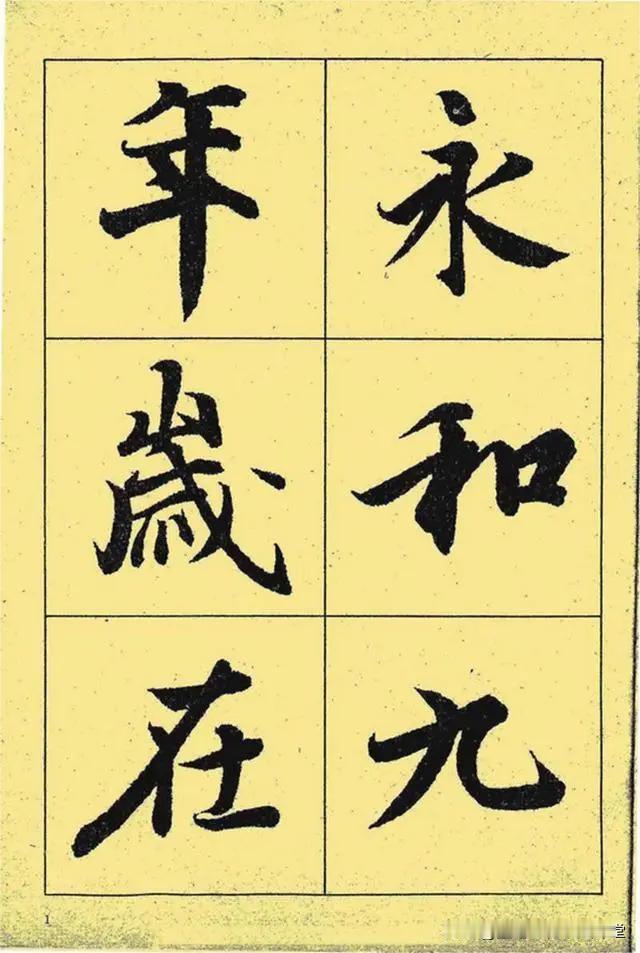 永和九
年歲在
1